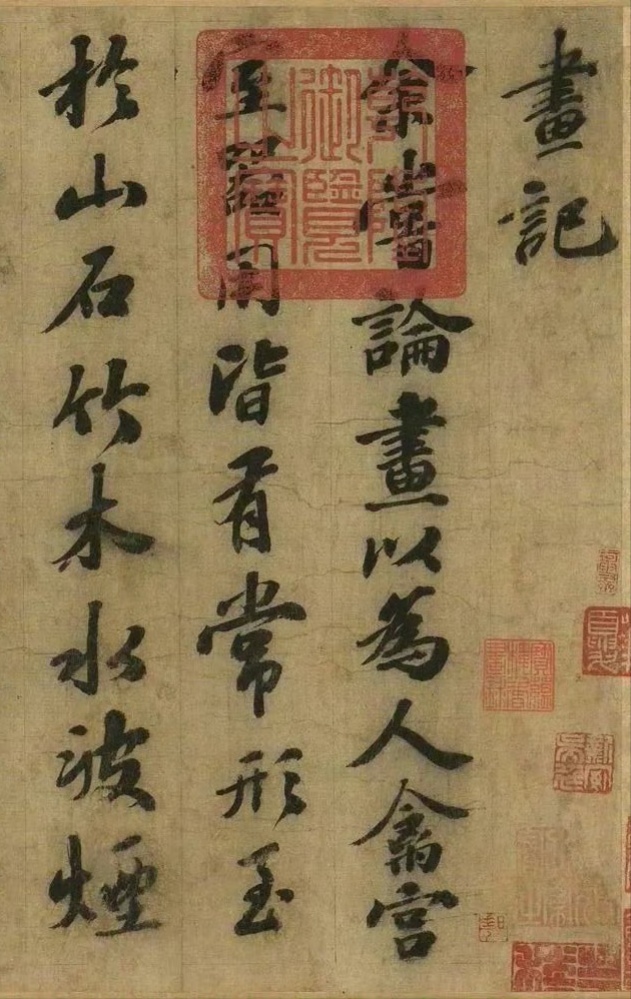 畫記
余嘗論畫以為人禽宮
室器用皆有常形至
於山石竹木水波煙
乾隆
御覽
之寶